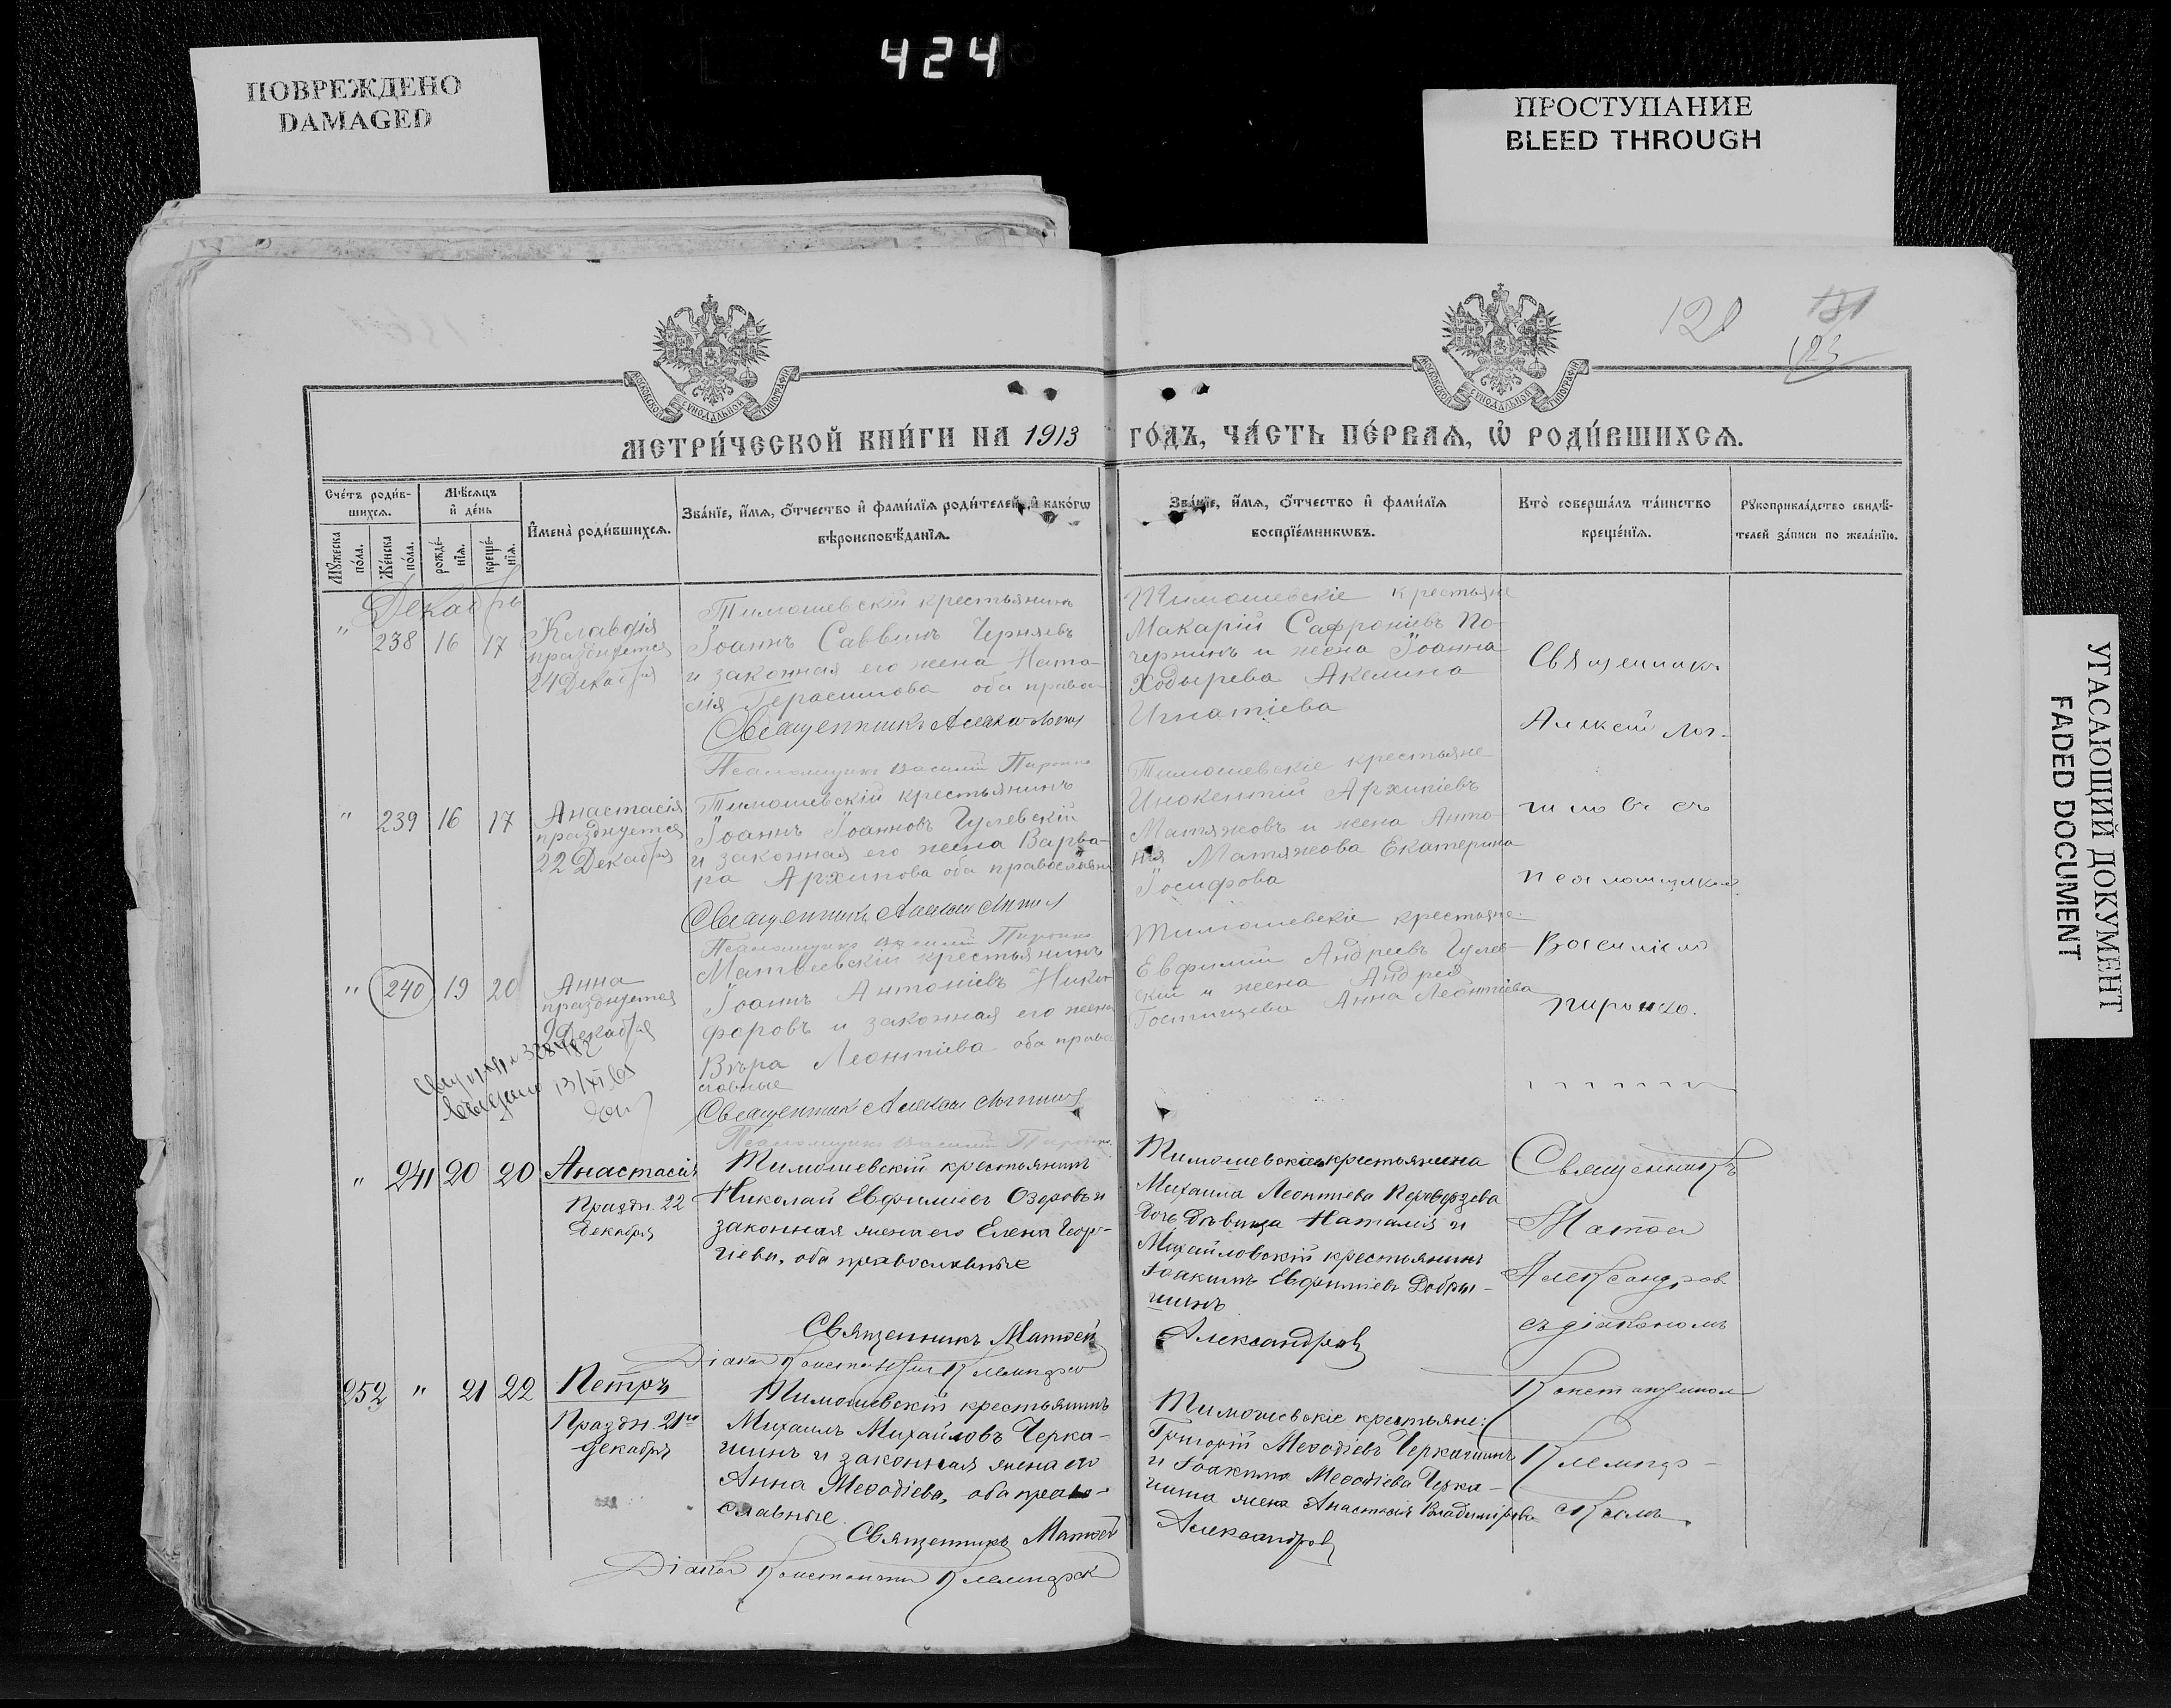 424
ПОВРЕЖДЕНО
DAMAGED
ПРОСТУПАНИЕ
BLEED THROUGH
УГАСАЮЩИЙ ДОКУМЕНТ
FADED DOCUMENT
МОСКОВСКОЙ СУНОДАЛЬНОЙ ТИПОГРАФИИ
МОСКОВСКОЙ СУНОДАЛЬНОЙ ТИПОГРАФИИ
121
123
МЕТРИ́ЧЕСКОЙ КНИ́ГИ НА 1913 ГО́ДЪ, ЧА́СТЬ ПЕ́РВАѦ, Ѡ РОДИ́ВШИХСѦ.
Сче́тъ роди́в-
шихсѧ.
Мꙋжеска по́ла.
Же́нска по́ла.
Мѣ́сѧцъ и де́нь
рожде́-нїѧ.
креще́-нїѧ.
И҆мена̀ роди́вшихсѧ.
Зва́нїе, и҆́мѧ, ѻ҆́тчество и҆ фами́лїѧ роди́телей, и҆ како́гѡ
вѣроисповѣ́данїѧ.
Зва́нїе, и҆́мѧ, ѻ҆́тчество и҆ фами́лїѧ
воспрїе́мникѡвъ.
Кто̀ соверша́лъ та́инство
креще́нїѧ.
Рꙋкоприкла́дство свидѣ́-
телей за́писи по жела́нїю.
Декабрь
" 238 16 17
Клавдія
празднуется
24 Декабря
Тимошевскій крестьянинъ
Іоаннъ Саввинъ Черняевъ
и законная его жена Ната-
лія Герасимова оба право
Священникъ Алексей
Тимошевскіе крестьяне
Макарій Сафроніевъ По-
чернинъ и жена Іоанна
Ходырева Акелина
Игнатіева
Священникъ
Алексей Лог-
Псаломщикъ Василий Пиронко
" 239 16 17
Анастасія
празднуется
22 Декабря
Тимошевскій крестьянинъ
Іоаннъ Іоанновъ Гулевскій
и законная его жена Варва-
ра Архипова оба православн
Священникъ Алексей
Псаломщикъ Василий Пиронко
Тимошевскіе крестьяне
Инокентій Архипіевъ
Матяжовъ и жена Анто-
нія Матяжова Екатерина
Іосифова
съ
псаломщикомъ
" 240 19 20
Анна
празднуется
9 Декабря
крестьянинъ
Іоаннъ Антоніевъ Ники-
форовъ и законная его жена
Вѣра Леонтіева оба право
славные
Священник Алексей
Псаломщикъ Василий Пиронко
Тимошевскіе крестьяне
Евфимій Андреевъ Гулев-
скій и жена Андрея
Гостищева Анна Леонтіева
Василіемъ
Пиронко.
13/XI
" 241 20 20
Анастасія
Праздн. 22
Декабря
Тимошевскій крестьянинъ
Николай Евфиміевъ Озеровъ и
законная жена его Елена Геор-
гіева, оба православные
Священникъ Матѳей
Діаконъ Константинъ
Тимошевскаго крестьянина
Михаила Леонтіева Переверзева
дочь дѣвица Наталія и
Михайловскій крестьянинъ
Іоакимъ Евфиміевъ Добры-
шинъ
Александровъ
Священникъ
Матѳей
Александровъ
съ діакономъ
Константиномъ
252 " 21 22
Петръ
Праздн. 21го
декабря
Тимошевскій крестьянинъ
Михаилъ Михайловъ Черка-
шинъ и законная жена его
Анна Меѳодіева, оба право-
славные.
Священникъ Матѳей
Діаконъ Константинъ
Тимошевскіе крестьяне:
Григорій Меѳодіевъ Черкашинъ
и Іоакима Меѳодіева Черка-
шина жена Анастасія Владимірова
Александровъ